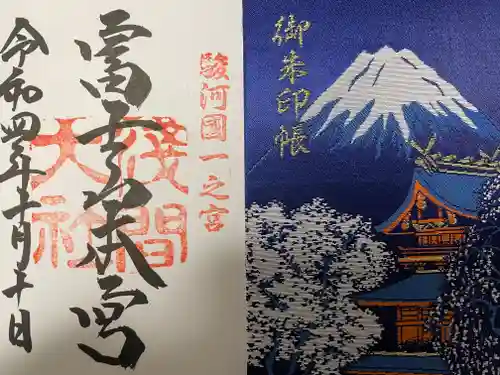 御朱印帳
駿河國一之宮
富士本宮
淺間
大社
令和四年十月十日